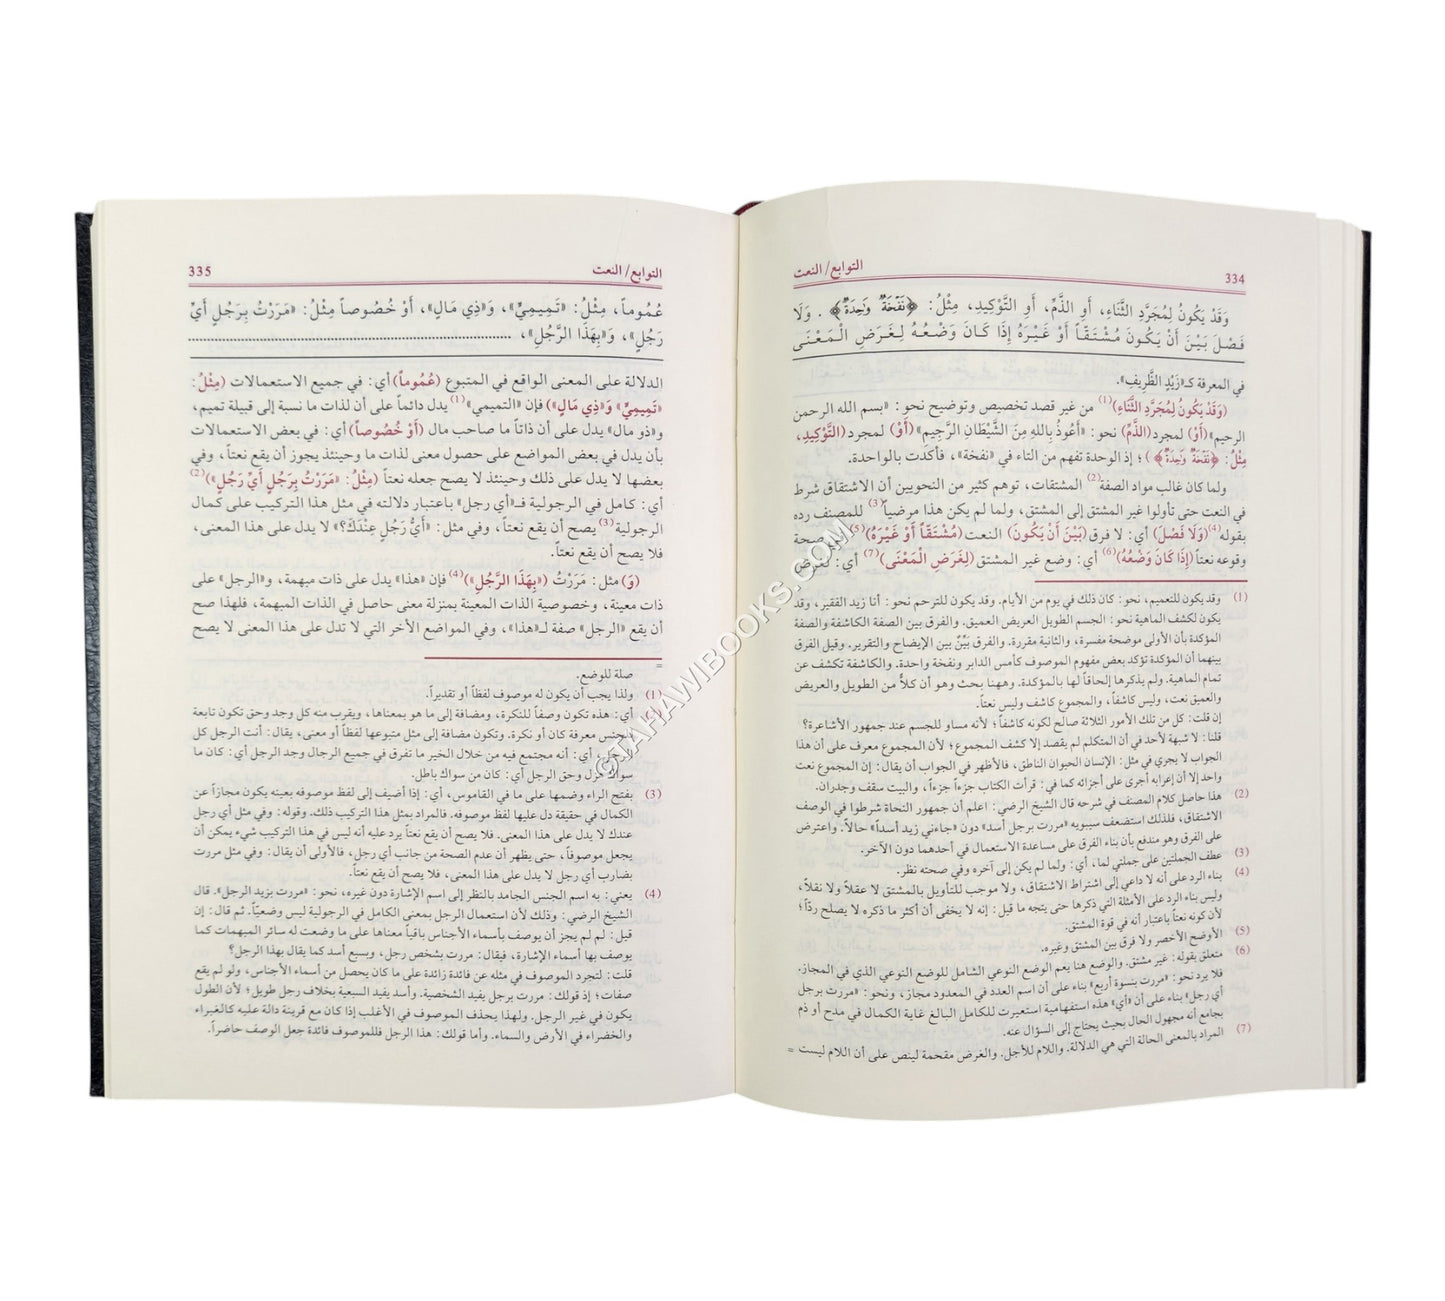 334
التوابع/ النعت
وَقَدْ يَكُونُ لِمُجَرَّدِ الثَّنَاءِ، أَوِ الذَّمِّ، أَوِ التَّوْكِيدِ، مِثْلُ: ﴿نَفْخَةٌ وَٰحِدَةٌ﴾. وَلَا
فَصْلَ بَيْنَ أَنْ يَكُونَ مُشْتَقّاً أَوْ غَيْرَهُ إِذَا كَانَ وَضْعُهُ لِغَرَضِ الْمَعْنَى
في المعرفة كـ«زَيْدٍ الظَّرِيفِ».
(وَقَدْ يَكُونُ لِمُجَرَّدِ الثَّنَاءِ)(1) من غير قصد تخصيص وتوضيح نحو: «بسم الله الرحمن
الرحيم» (أَوْ) لمجرد (الذَّمِّ) نحو: «أَعُوذُ بِاللهِ مِنَ الشَّيْطَانِ الرَّجِيمِ» (أَوْ) لمجرد (التَّوْكِيدِ،
مِثْلُ: ﴿نَفْخَةٌ وَٰحِدَةٌ﴾)؛ إذ الوحدة تفهم من التاء في «نفخة»، فأكدت بالواحدة.
ولما كان غالب مواد الصفة(2) المشتقات، توهم كثير من النحويين أن الاشتقاق شرط
في النعت حتى تأولوا غير المشتق إلى المشتق، ولما لم يكن هذا مرضياً(3) للمصنف رده
بقوله(4) (وَلَا فَصْلَ) أي: لا فرق (بَيْنَ أَنْ يَكُونَ) النعت (مُشْتَقّاً أَوْ غَيْرَهُ)(5) صحة
وقوعه نعتاً (إِذَا كَانَ وَضْعُهُ)(6) أي: وضع غير المشتق (لِغَرَضِ الْمَعْنَى)(7) أي: لغرض
(1) وقد يكون للتعميم، نحو: كان ذلك في يوم من الأيام. وقد يكون للترحم نحو: أنا زيد الفقير، وقد
يكون لكشف الماهية نحو: الجسم الطويل العريض العميق. والفرق بين الصفة الكاشفة والصفة
المؤكدة بأن الأولى موضحة مفسرة، والثانية مقررة. والفرق بَيِّنٌ بين الإيضاح والتقرير. وقيل الفرق
بينهما أن المؤكدة تؤكد بعض مفهوم الموصوف كأمس الدابر ونفخة واحدة. والكاشفة تكشف عن
تمام الماهية. ولم يذكرها إلحاقاً لها بالمؤكدة. وههنا بحث وهو أن كلاً من الطويل والعريض
والعميق نعت، وليس كاشفاً، والمجموع كاشف وليس نعتاً.
إن قلت: كل من تلك الأمور الثلاثة صالح لكونه كاشفاً؛ لأنه مساو للجسم عند جمهور الأشاعرة؟
قلنا: لا شبهة لأحد في أن المتكلم لم يقصد إلا كشف المجموع؛ لأن المجموع معرف على أن هذا
الجواب لا يجري في مثل: الإنسان الحيوان الناطق، فالأظهر في الجواب أن يقال: إن المجموع نعت
واحد إلا أن إعرابه أجرى على أجزائه كما في: قرأت الكتاب جزءاً جزءاً، والبيت سقف وجدران.
(2) هذا حاصل كلام المصنف في شرحه قال الشيخ الرضي: اعلم أن جمهور النحاة شرطوا في الوصف
الاشتقاق، فلذلك استضعف سيبويه «مررت برجل أسد» دون «جاءني زيد أسداً» حالاً. واعترض
على الفرق وهو مندفع بأن بناء الفرق على مساعدة الاستعمال في أحدهما دون الآخر.
(3) عطف الجملتين على جملتي لما، أي: ولما لم يكن إلى آخره وفي صحته نظر.
(4) بناء الرد على أنه لا داعي إلى اشتراط الاشتقاق، ولا موجب للتأويل بالمشتق لا عقلاً ولا نقلاً،
وليس بناء الرد على الأمثلة التي ذكرها حتى يتجه ما قيل: إنه لا يخفى أن أكثر ما ذكره لا يصلح ردّاً؛
لأن كونه نعتاً باعتبار أنه في قوة المشتق.
(5) الأوضح الأخصر ولا فرق بين المشتق وغيره.
(6) متعلق بقوله: غير مشتق. والوضع هنا يعم الوضع النوعي الشامل للوضع النوعي الذي في المجاز.
فلا يرد نحو: «مررت بنسوة أربع» بناء على أن اسم العدد في المعدود مجاز، ونحو: «مررت برجل
أي رجل» بناء على أن «أي» هذه استفهامية استعيرت للكامل البالغ غاية الكمال في مدح أو ذم
بجامع أنه مجهول الحال بحيث يحتاج إلى السؤال عنه.
(7) المراد بالمعنى الحالة التي هي الدلالة. واللام للأجل. والغرض مقحمة لينص على أن اللام ليست =
التوابع/ النعت
335
عُمُوماً، مِثْلُ: «تَمِيمِيٍّ»، وَ«ذِي مَالٍ»، أَوْ خُصُوصاً مِثْلُ: «مَرَرْتُ بِرَجُلٍ أَيِّ
رَجُلٍ»، وَ«بِهَذَا الرَّجُلِ»، ........
الدلالة على المعنى الواقع في المتبوع (عُمُوماً) أي: في جميع الاستعمالات (مِثْلُ:
«تَمِيمِيٍّ» وَ«ذِي مَالٍ») فإن «التميمي»(1) يدل دائماً على أن لذات ما نسبة إلى قبيلة تميم،
و«ذو مال» يدل على أن ذاتاً ما صاحب مال (أَوْ خُصُوصاً) أي: في بعض الاستعمالات
بأن يدل في بعض المواضع على حصول معنى لذات ما وحينئذ يجوز أن يقع نعتاً، وفي
بعضها لا يدل على ذلك وحينئذ لا يصح جعله نعتاً (مِثْلُ: «مَرَرْتُ بِرَجُلٍ أَيِّ رَجُلٍ»)(2)
أي: كامل في الرجولية فـ«أي رجل» باعتبار دلالته في مثل هذا التركيب على كمال
الرجولية(3) يصح أن يقع نعتاً، وفي مثل: «أَيُّ رَجُلٍ عِنْدَكَ؟» لا يدل على هذا المعنى،
فلا يصح أن يقع نعتاً.
(وَ) مثل: مَرَرْتُ («بِهَذَا الرَّجُلِ»)(4) فإن «هذا» يدل على ذات مبهمة، و«الرجل» على
ذات معينة، وخصوصية الذات المعينة بمنزلة معنى حاصل في الذات المبهمة، فلهذا صح
أن يقع «الرجل» صفة لـ«هذا»، وفي المواضع الأخر التي لا تدل على هذا المعنى لا يصح
= صلة للوضع.
(1) ولذا يجب أن يكون له موصوف لفظاً أو تقديراً.
أي: هذه تكون وصفاً للنكرة، ومضافة إلى ما هو بمعناها، ويقرب منه كل وجد وحق تكون تابعة
للجنس معرفة كان أو نكرة. وتكون مضافة إلى مثل متبوعها لفظاً أو معنى، يقال: أنت الرجل كل
الرجل، أي: أنه مجتمع فيه من خلال الخير ما تفرق في جميع الرجال وجد الرجل أي: كان ما
سواك هزل وحق الرجل أي: كان من سواك باطل.
(3) بفتح الراء وضمها على ما في القاموس، أي: إذا أضيف إلى لفظ موصوفه بعينه يكون مجازاً عن
الكمال في حقيقة دل عليها لفظ موصوفه. فالمراد بمثل هذا التركيب ذلك. وقوله: وفي مثل أي رجل
عندك لا يدل على هذا المعنى. فلا يصح أن يقع نعتاً يرد عليه أنه ليس في هذا التركيب شيء يمكن أن
يجعل موصوفاً، حتى يظهر أن عدم الصحة من جانب أي رجل، فالأولى أن يقال: وفي مثل مررت
بضارب أي رجل لا يدل على هذا المعنى، فلا يصح أن يقع نعتاً.
(4) يعني: به اسم الجنس الجامد بالنظر إلى اسم الإشارة دون غيره، نحو: «مررت بزيد الرجل». قال
الشيخ الرضي: وذلك لأن استعمال الرجل بمعنى الكامل في الرجولية ليس وضعيّاً. ثم قال: إن
قيل: لم لم يجز أن يوصف بأسماء الأجناس باقياً معناها على ما وضعت له سائر المبهمات كما
يوصف بها أسماء الإشارة، فيقال: مررت بشخص رجل، وبسبع أسد كما يقال بهذا الرجل؟
قلت: لتجرد الموصوف في مثله عن فائدة زائدة على ما كان يحصل من أسماء الأجناس، ولو لم يقع
صفات؛ إذ قولك: مررت برجل يفيد الشخصية. وأسد يفيد السبعية بخلاف رجل طويل؛ لأن الطول
يكون في غير الرجل. ولهذا يحذف الموصوف في الأغلب إذا كان مع قرينة دالة عليه كالغبراء
والخضراء في الأرض والسماء. وأما قولك: هذا الرجل فللموصوف فائدة جعل الوصف حاضراً.
© TAHAWIBOOKS.COM